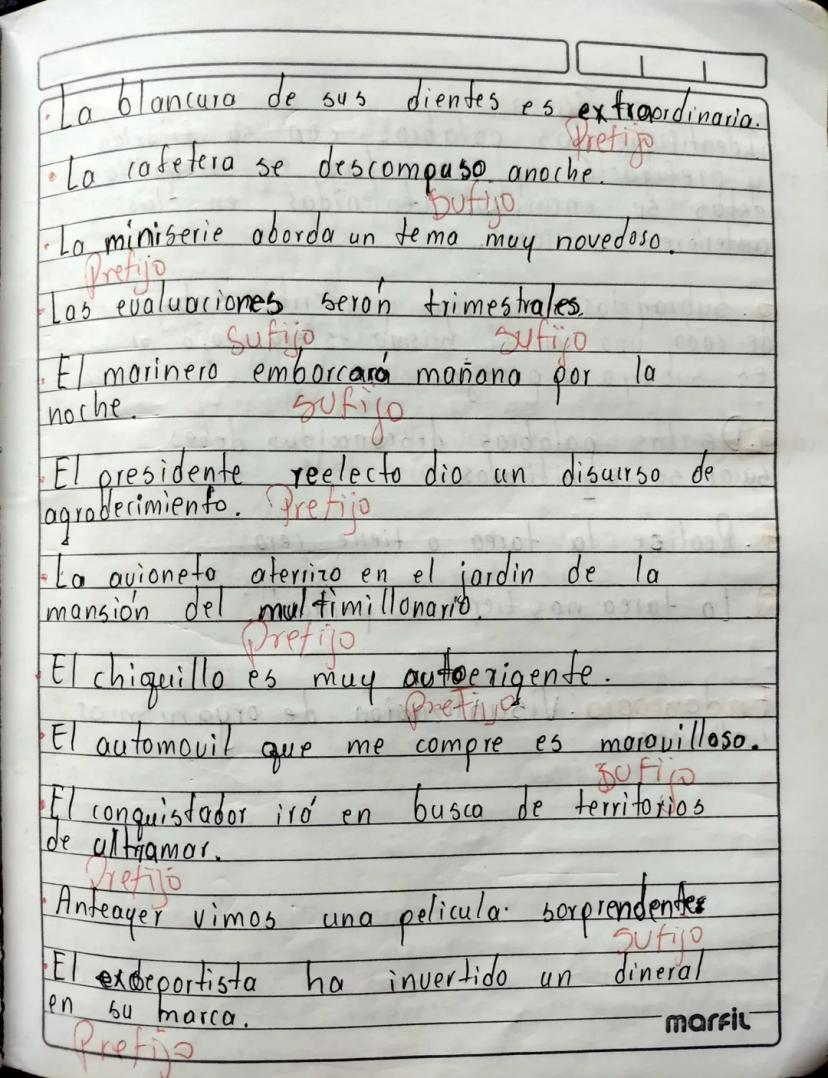 La blancura de sus dientes es extraordinaria.
Prefijo
La cafetera se descompuso anoche.
Sufijo
La miniserie aborda un tema muy novedoso.
Prefijo
Las evaluaciones serán trimestrales.
Sufijo Sufijo
El marinero embarcará mañana por la
noche. Sufijo
El presidente reelecto dio un discurso de
agradecimiento. Prefijo
La avioneta aterrizo en el jardin de la
mansión del multimillonario.
Prefijo
El chiquillo es muy autoexigente.
Prefijo
El automovil que me compre es maravilloso.
Sufijo
El conquistador irá en busca de territorios
de ultramar.
Prefijo
Anteayer vimos una pelicula sorprendente
Sufijo
El exdeportista ha invertido un dineral
en su marca.
Prefijo
marfil